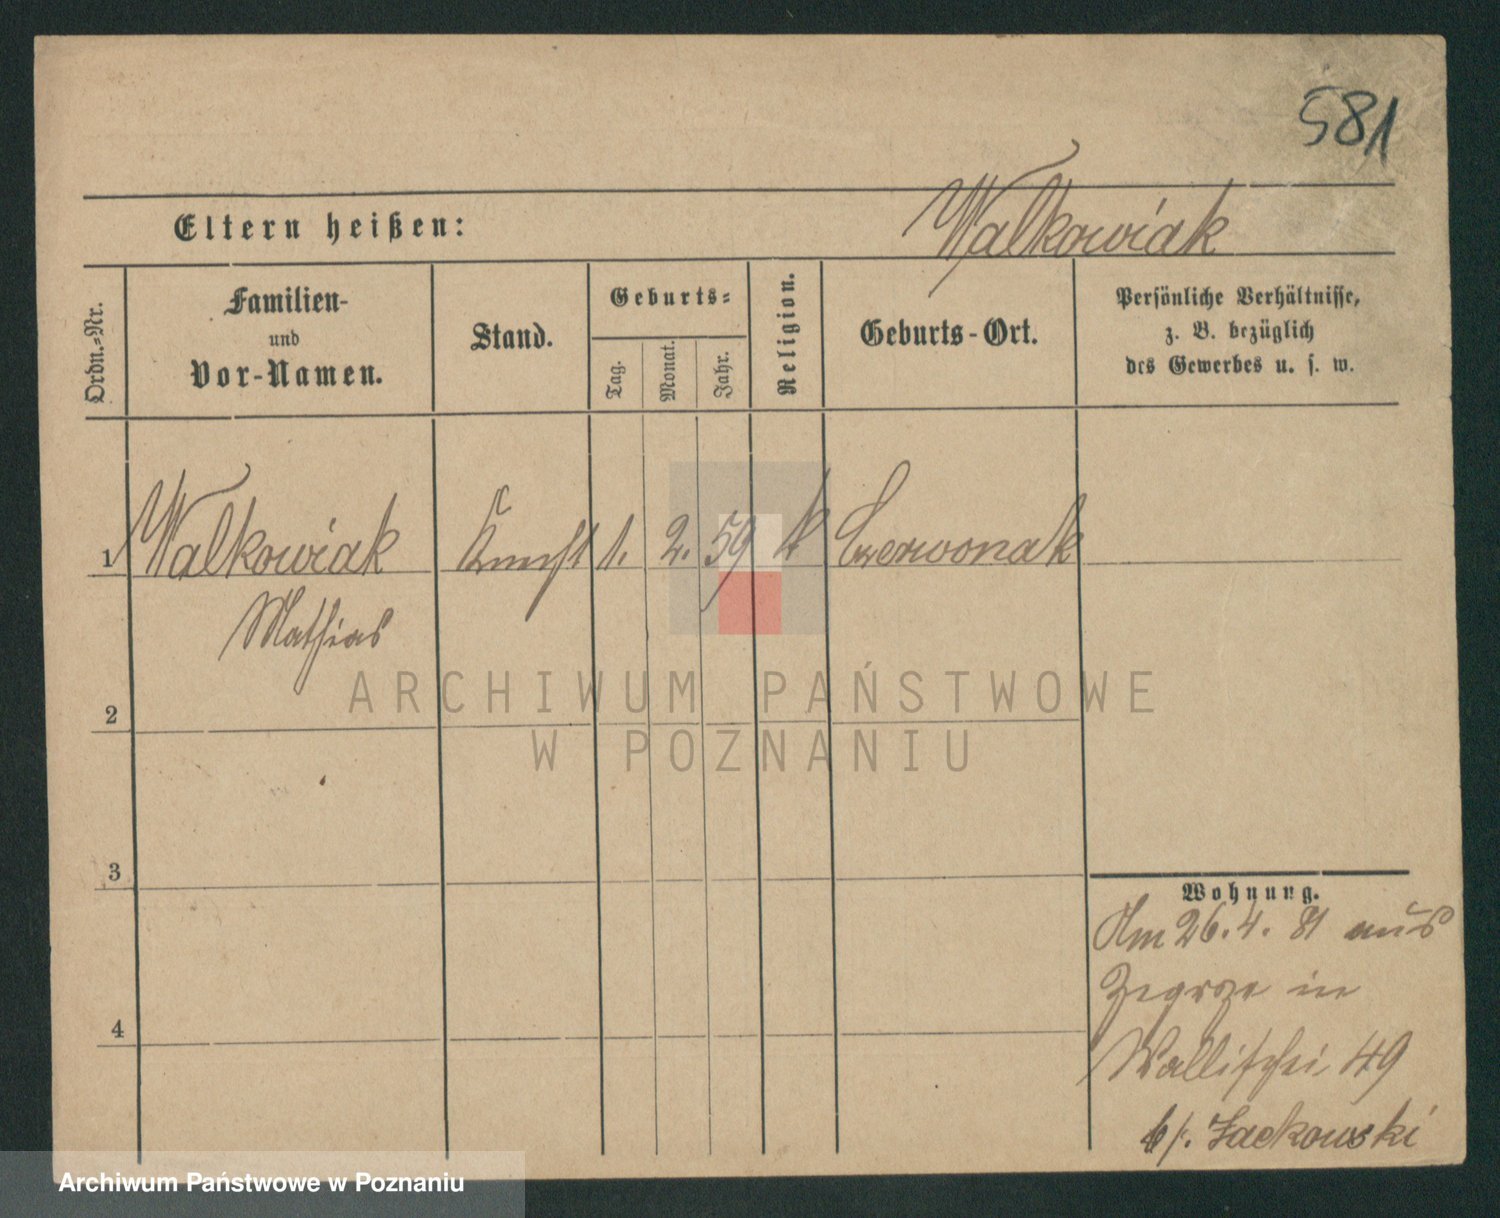 581
Eltern heißen:
Walkowiak
Ordn.-Nr.
Familien-
und
Vor-Namen.
Stand.
Geburts-
Tag.
Monat.
Jahr.
Religion.
Geburts-Ort.
Persönliche Verhältnisse,
z. B. bezüglich
des Gewerbes u. s. w.
1 Walkowiak Knecht 1. 2. 59 k Czerwonak
Mathias
ARCHIWUM PAŃSTWOWE
W POZNANIU
2
3
4
Wohnung.
Am 26. 4. 81 aus
Zegrze in
Wallischei 49
b/. Jackowski
Archiwum Państwowe w Poznaniu